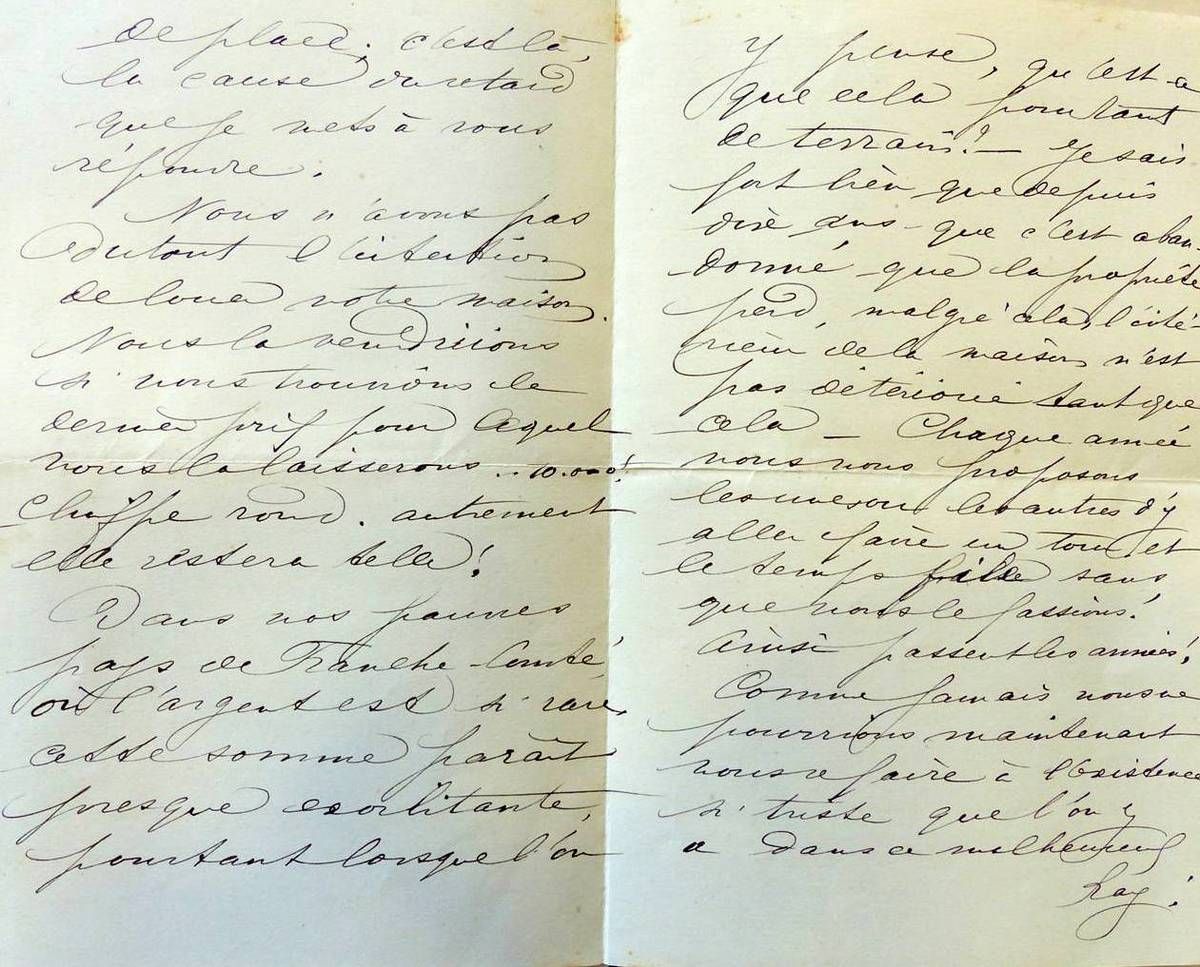 de place; c'est là,
la cause du retard
que je mets à vous
répondre.
Nous n'avons pas
du tout l'intention
de louer notre maison.
Nous la vendrions
si nous trouvions le
dernier prix pour lequel
nous la laisserons... 10.000!
chiffre rond. autrement
elle restera telle!
Dans nos pauvres
pays de Franche-Comté
où l'argent est si rare,
cette somme paraît
presque exorbitante,
pourtant lorsque l'on
y pense, qu'est-ce
que cela pour tant
de terrain! — Je sais
fort bien que depuis
dix ans - que c'est aban-
donné - que la propriété
perd, malgré cela, l'inté-
rieur de la maison n'est
pas détérioré tant que
cela — Chaque année
nous nous proposons
les unes ou les autres d'y
aller faire un tour et
le temps file sans
que nous le fassions!
Ainsi passent les années!
Comme jamais nous ne
pourrions maintenant
nous refaire à l'existence
si triste que l'on y
a dans ce malheureux
Ray!